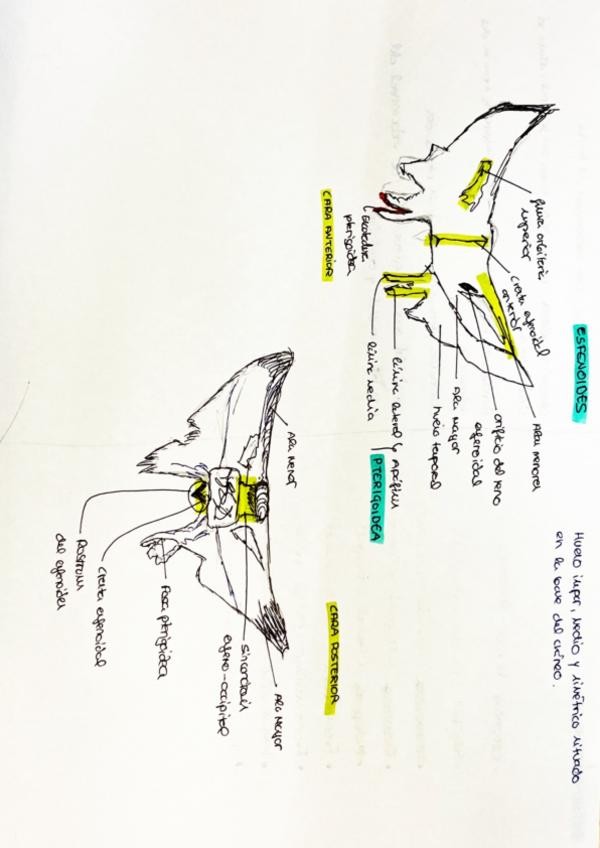 ESFENOIDES
Hueso impar, medio y simétrico situado
en la base del cráneo.
fisura orbitaria
superior
cresta esfenoidal
anterior
Alas menores
orificio del seno
esfenoidal
Ala Mayor
hueso temporal
lámina lateral y Apófisis
PTERIGOIDEA
lámina media
Escotadura
pterigoidea
CARA ANTERIOR
CARA POSTERIOR
Ala Menor
Ala Mayor
sincondrosis
esfeno-occipital
Fosa pterigoidea
Cresta esfenoidal
Rostrum
del esfenoides